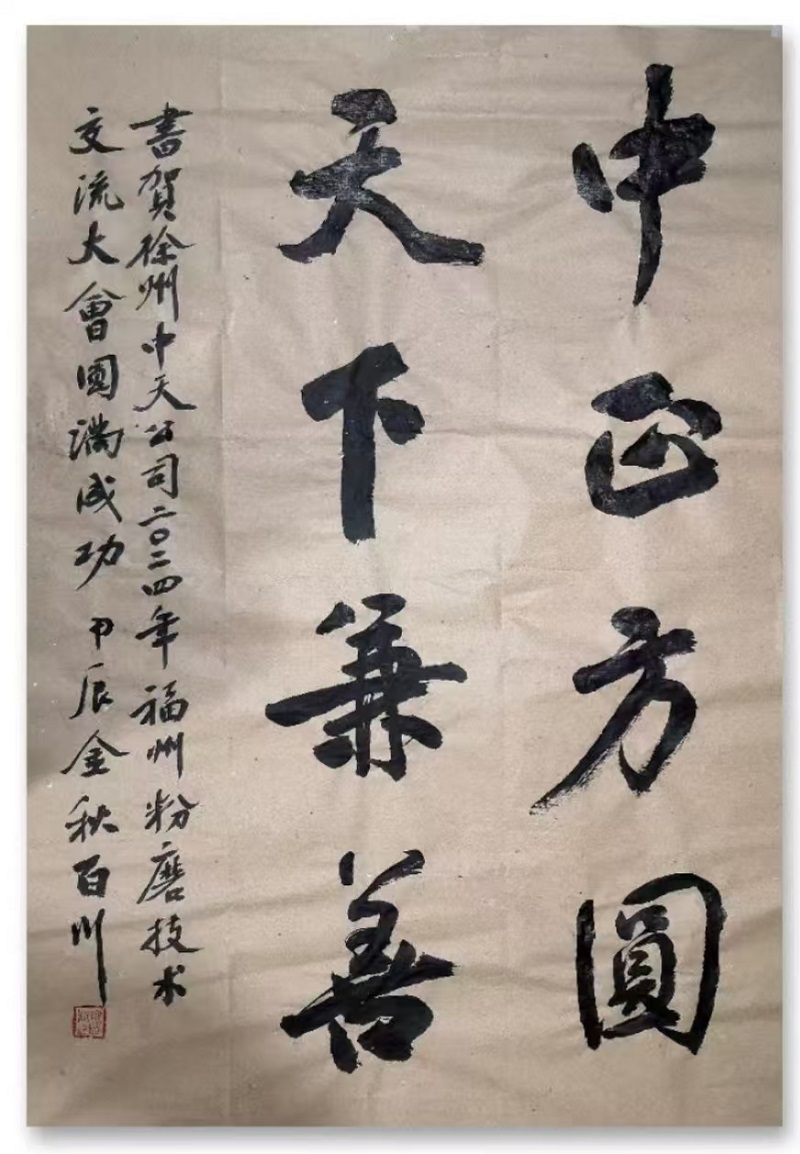 中正方圓
天下兼善
書賀徐州中天公司二〇二四年福州粉磨技术
交流大會圓满成功 甲辰金秋百川